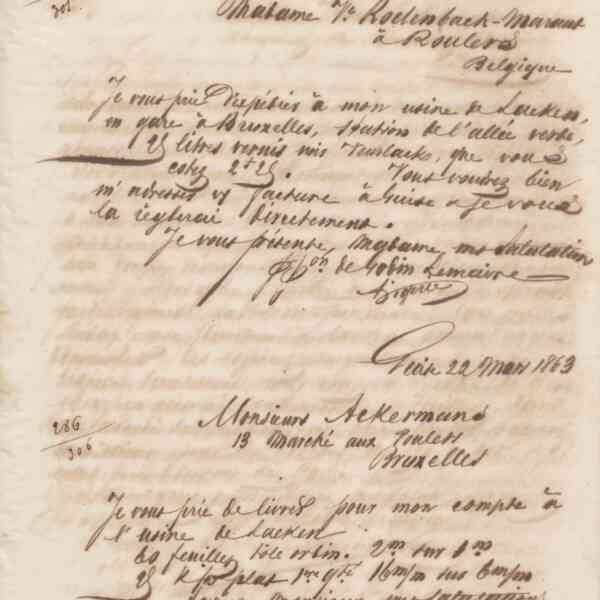 301.
Madame Vve Rodenback-Maraut
à Roulers
Belgique
Je vous prie D'expédier à mon usine de Laeken,
en gare à Bruxelles, Station de l'allée verte,
25 litres vernis noir que vous
cotez 2f 25. Vous voudrez bien
m'adresser vs facture à Guise & je vous
la règlerai Directement.
Je vous présente, Madame, mes Salutation
de Godin Lemaire
Guise 22 Mars 1863
286
306
Monsieurs Ackermans
13 Marché aux Poulets
Bruxelles
Je vous prie de livrer pour mon compte à
l'usine de Laeken
60 feuilles tôle ordin. 2m sur 1m
25 K fer plat 1re qté 16m/m sur 6m/m
mes salutations